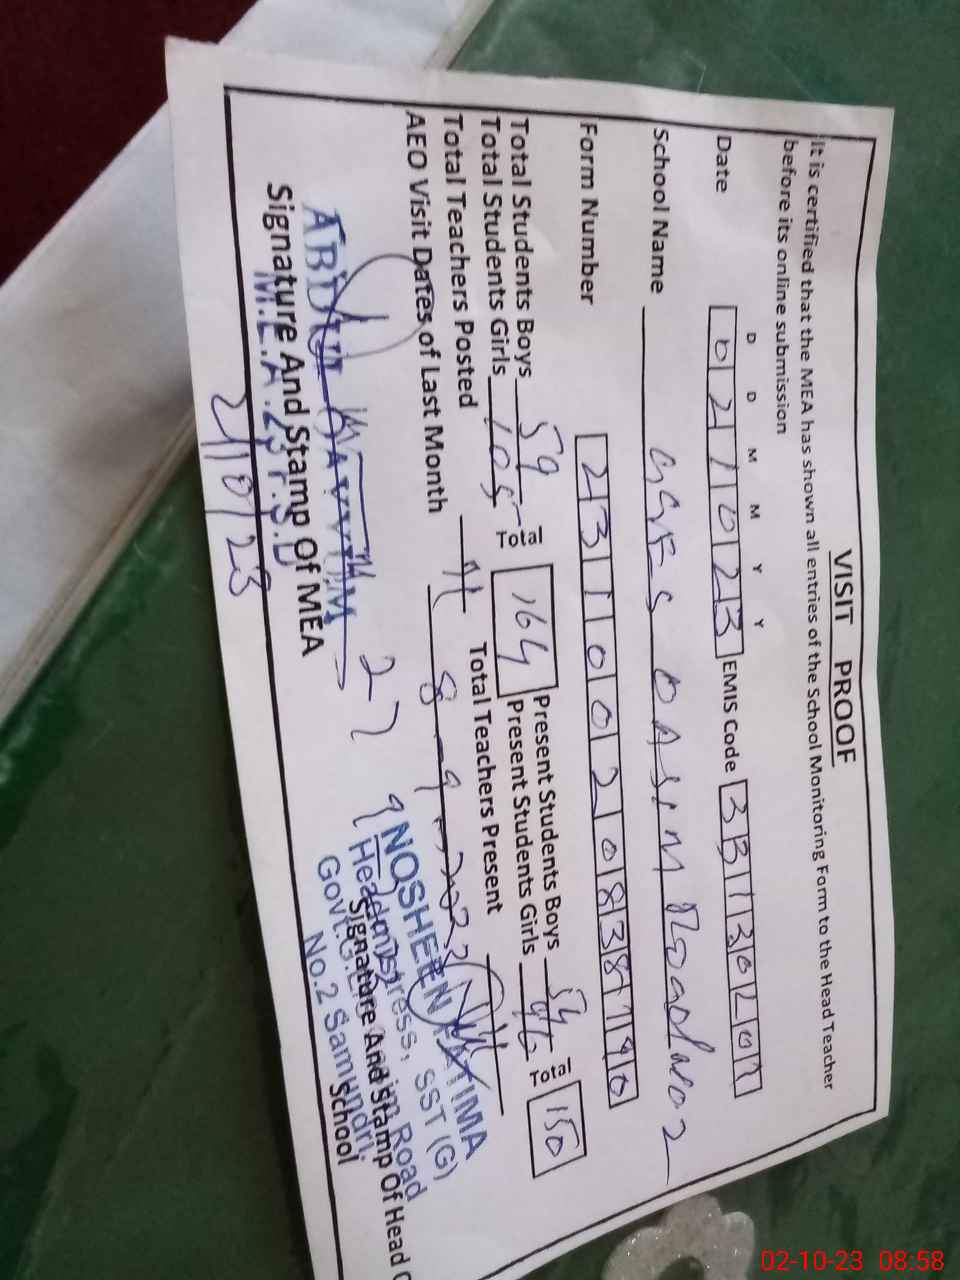 VISIT PROOF
It is certified that the MEA has shown all entries of the School Monitoring Form to the Head Teacher
before its online submission
D D M M Y Y
Date 021023 EMIS Code 33130207
School Name GGES QASIM Road No 2
Form Number 231100208387490
Total Students Boys 59 Total 164 Present Students Boys 54 Total 150
Total Students Girls 105 Present Students Girls 96
Total Teachers Posted 4 Total Teachers Present 4
AEO Visit Dates of Last Month 8-9-2023
27 9
ABDUL
M.E.A.
Signature And Stamp Of MEA
2/10/23
NOSHEEN FATIMA
Headmistress, SST (G)
Road
No.2 Samundri.
Signature And Stamp Of Head
School
02-10-23 08:58